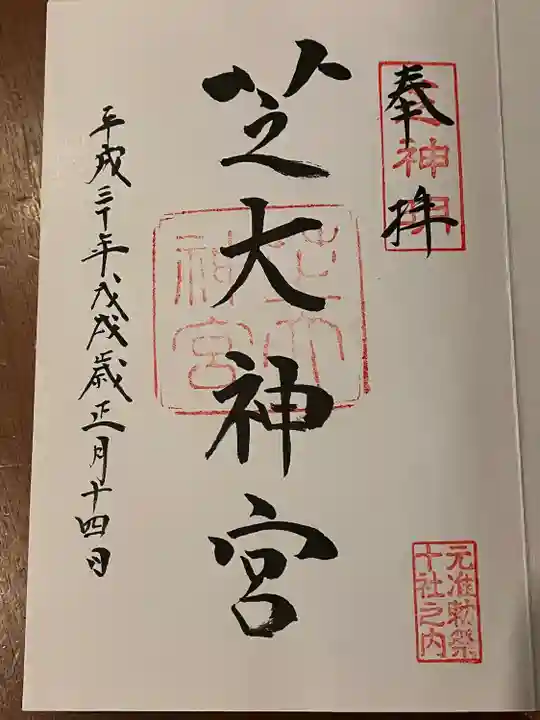 奉拝
芝神明
芝大神宮
芝大神宮
平成三十年戊戌歳正月十四日
元准勅祭
十社之内